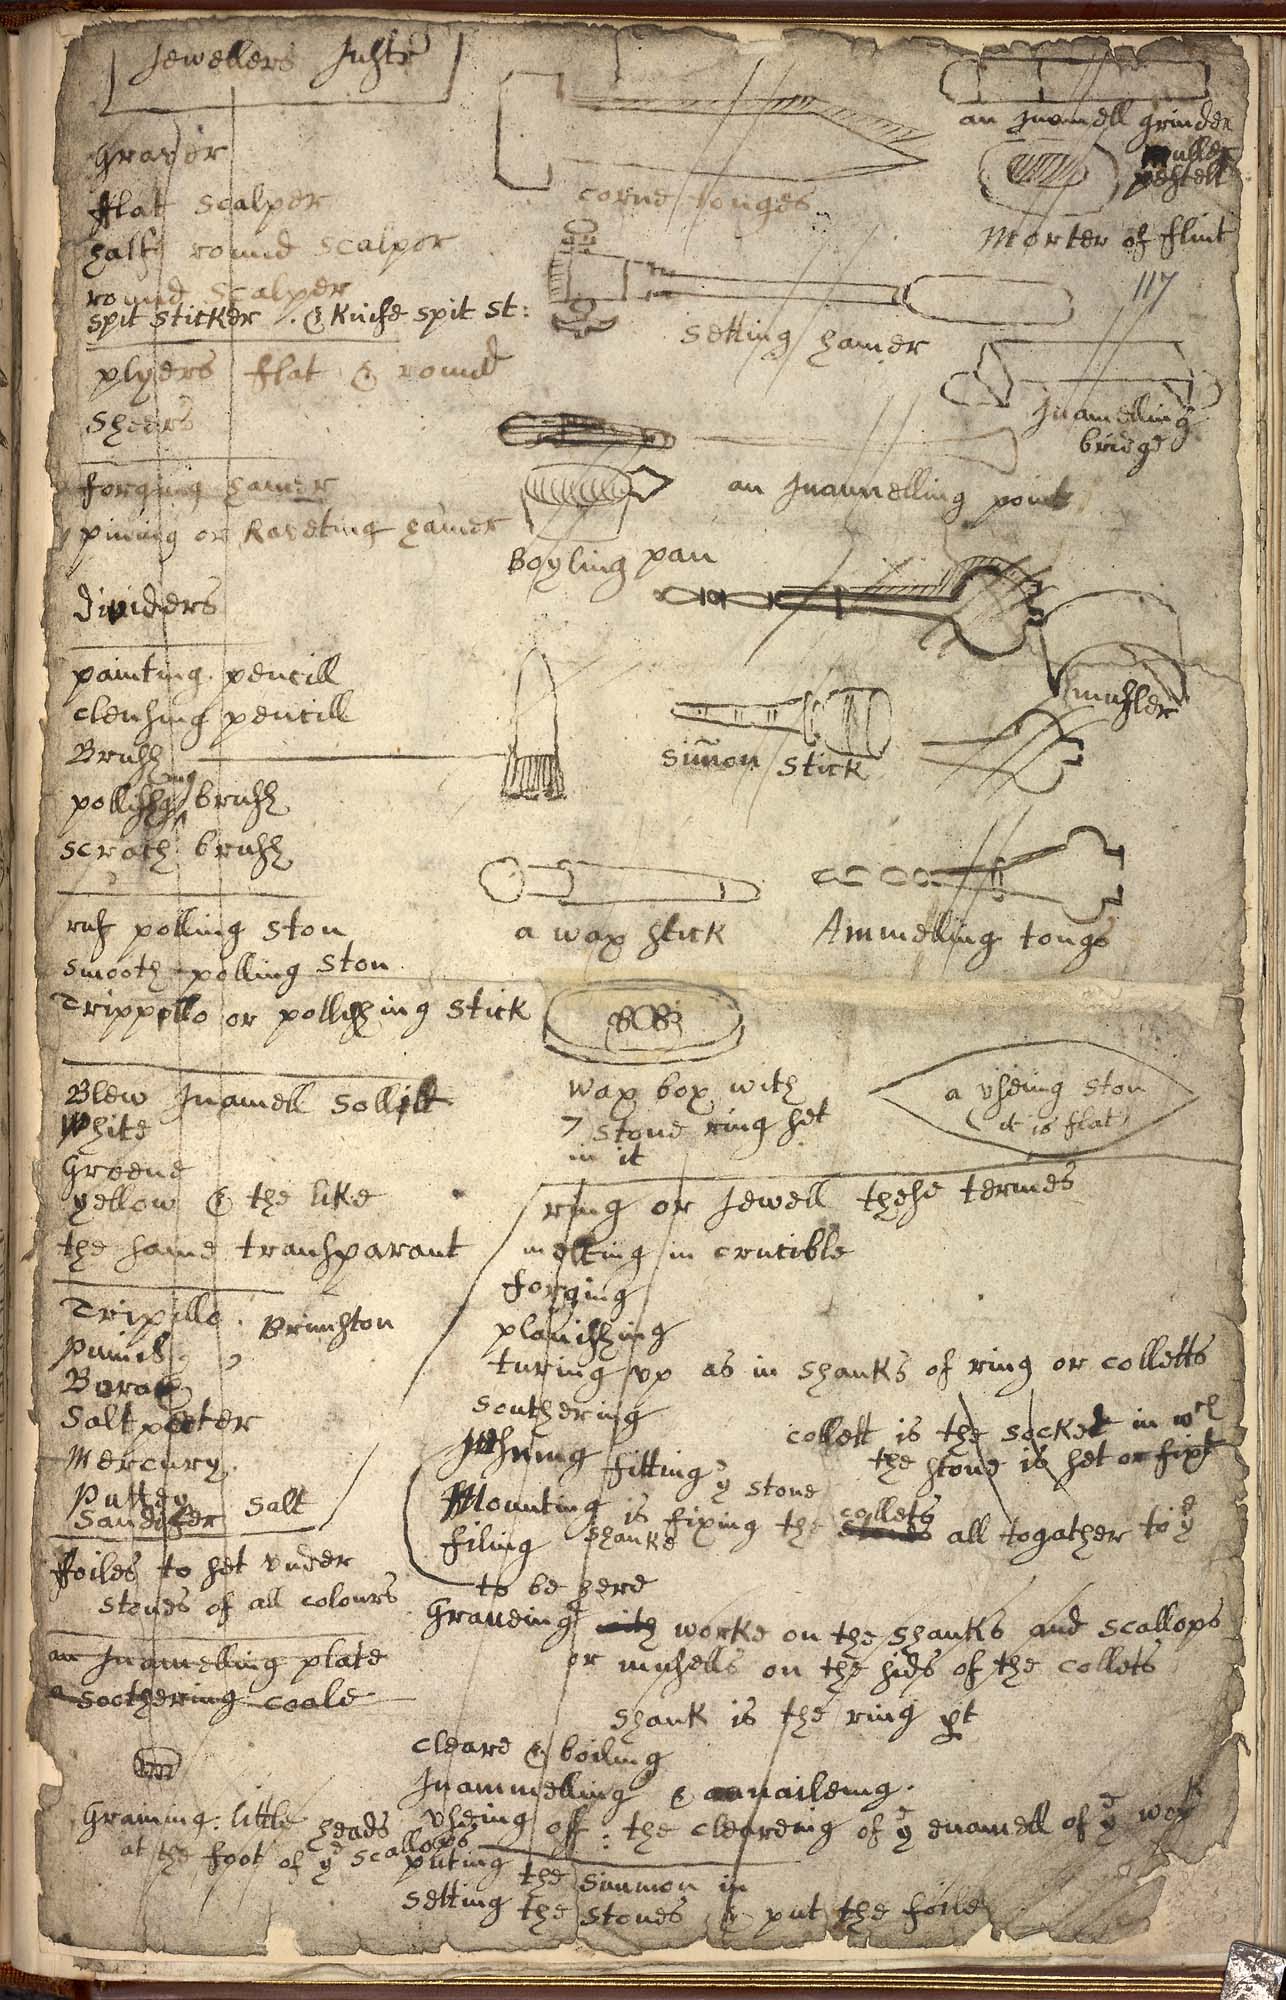 Jewellers Instr
Graver
fflat scalper
halfe round scalper
round scalper
spit sticker . & Knife spit st:
plyers flat & round
Sheers
forging hamer
pining or Raveting hamer
Dividers
painting pencill
clensing pencill
Brush
pollishing brush
scrath brush
ruf polling ston
smooth polling ston
Trippello or pollishing stick
Blew Inamell sollid
White
Greene
yellow & the like
the same transparant
Tripillo . Brimston
Pumis
Borax
Salt peeter
Mercury.
Puttey
Sandifer salt
ffoiles to set under
stones of all colours
an Inamelling plate
a soothering coale
Graining: little heads
at the foot of ye scallops
corne tonges
an Inamell grinder
muller
pestell
Morter of flint
117
setting hamer
Inamelling
bridge
an Inamelling point
Boyling pan
mufler
Simon stick
a wax stick
Ammelling tongs
wax box with
7 stone ring set
in it
a useing ston
(it is flat)
ring or Jewell these termes
melting in crucible
forging
planishing
turing up as in shanks of ring or colletts
southering
collett is the socket in wch
the stone is set or fixt
fitting ye stone
Mounting is fixing the collets all togather to ye
shanke
filing
to be here
Graveing with worke on the shanks and scallops
or musells on the sids of the collets
shank is the ring pt
cleare & boiling
Inammelling & anaileing.
useing off: the cleareing of ye enamell of ye work
puting the simmon in
setting the stones & put the foile